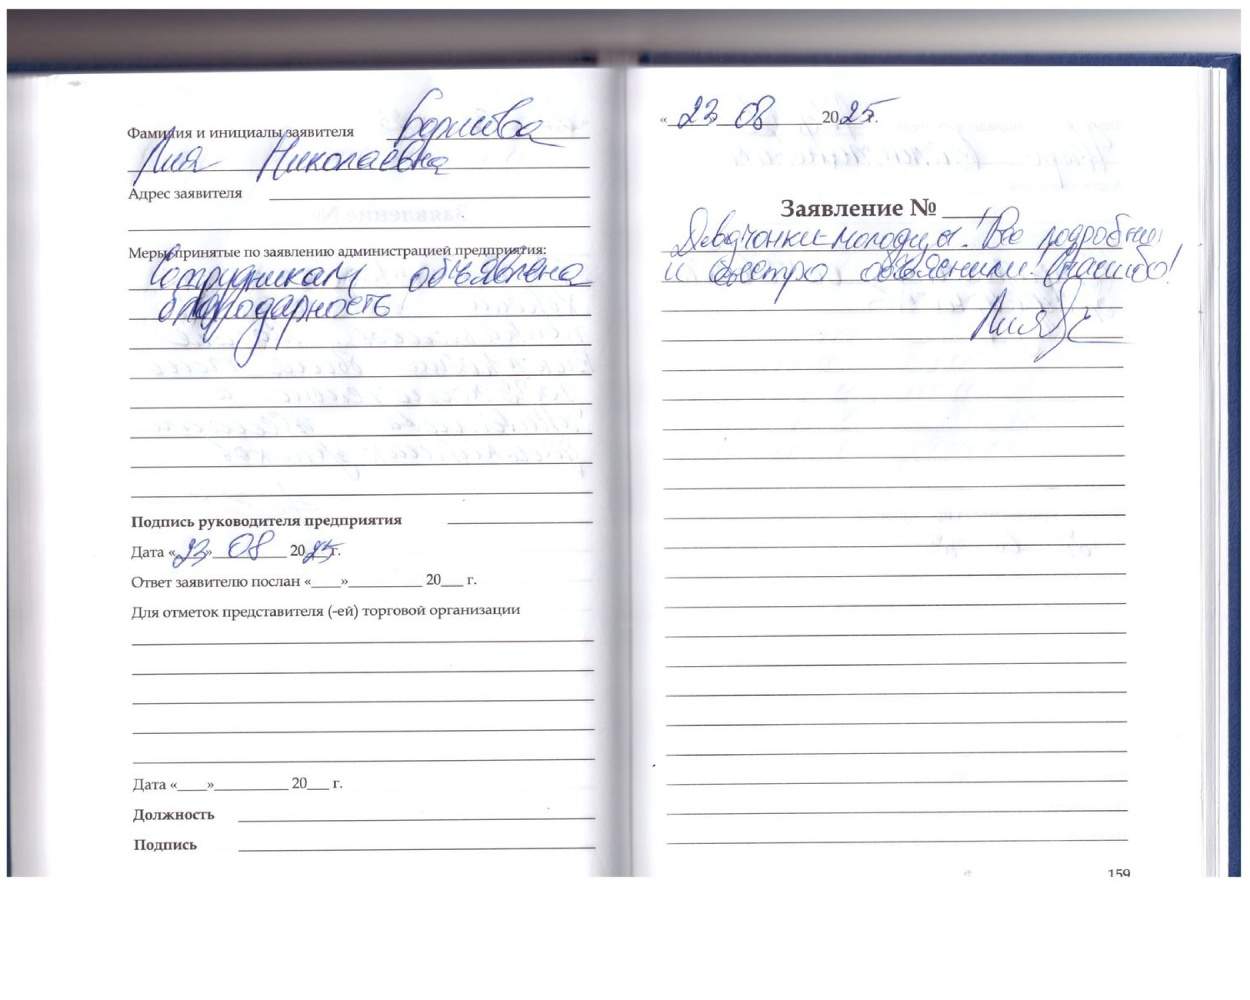 Фамилия и инициалы заявителя Борисова
Лия Николаевна
Адрес заявителя
Меры принятые по заявлению администрацией предприятия:
Сотрудникам объявлена
благодарность
Подпись руководителя предприятия
Дата «23» 08 2025г.
Ответ заявителю послан «____»__________ 20___ г.
Для отметок представителя (-ей) торговой организации
Дата «____»__________ 20___ г.
Должность
Подпись
«23» 08 2025г.
Заявление № ____
Девчонки-молодцы! Все подробно
и быстро объяснили! Спасибо!
Лия
159